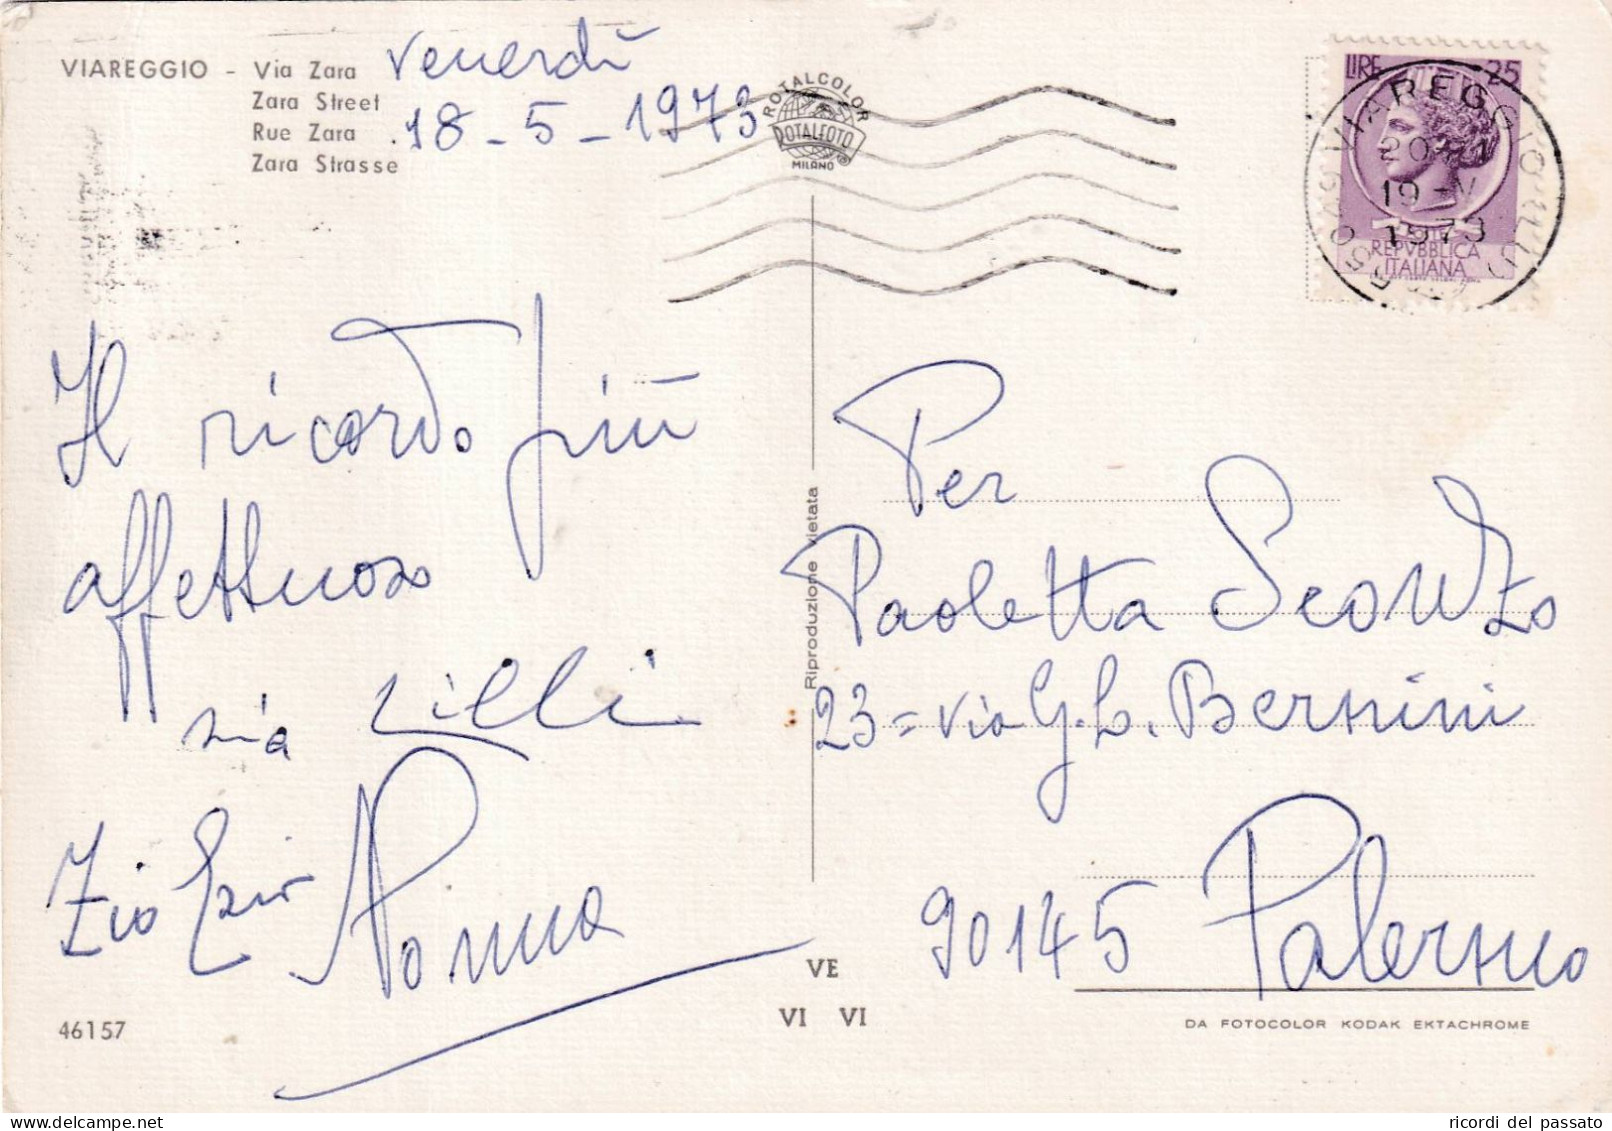 VIAREGGIO - Via Zara
Zara Street
Rue Zara
Zara Strasse
Venerdì
18-5-1973
ROTALCOLOR
ROTALFOTO
MILANO
LIRE 25
VIAREGGIO
19-V
1973
REPVBBLICA
ITALIANA
Il ricordo più
affettuoso
zia Lilli
Zio Ezio
Nonna
Riproduzione vietata
Per
Paoletta Sconzo
23 = via G. L. Bernini
90145 Palermo
VE
VI VI
46157
DA FOTOCOLOR KODAK EKTACHROME
ricordi del passato